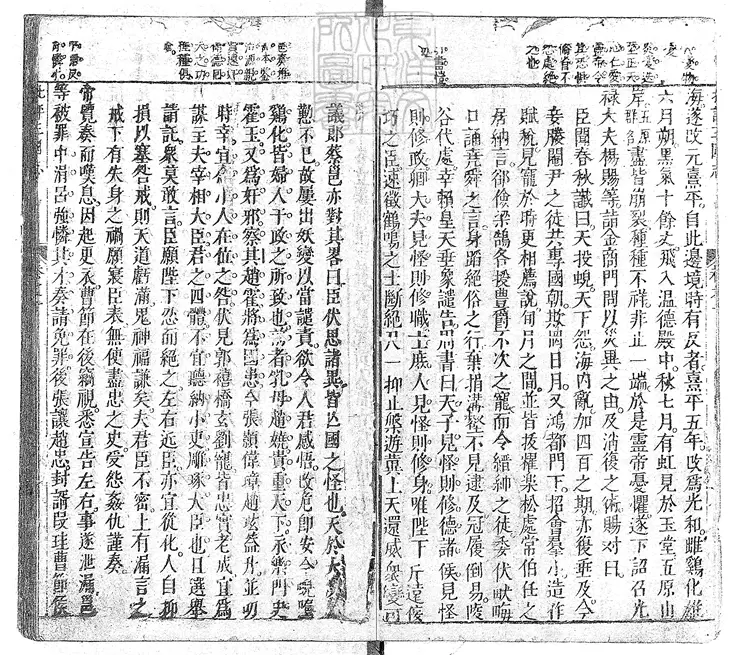 海遂改元熹平自此邊境時有反者熹平五年改爲光和雌鷄化雄
六月朔黑氣十餘丈飛入温德殿中秋七月有虹見於玉堂五原山
岸五原郡名盡皆崩裂種種不祥非止一端於是靈帝憂懼遂下詔召光
祿大夫楊賜等詣金商門問以災異之由及消復之術賜對曰
臣聞春秋讖曰天投蜺天下怨海内亂加四百之期亦復垂及今
妾媵閹尹之徒共專國朝欺罔日月又鴻都門下招會羣小造作
賦稅見寵於時更相薦說旬月之間並皆拔擢樂松處常伯任芝
居納言郤儉梁鵠各授豐爵不次之寵而令縉紳之徒委伏畎畝
口誦堯舜之言身蹈絕俗之行棄捐溝壑不見逮及冠履倒易陵
谷代處幸賴皇天垂象譴告周書曰天子見怪則修德諸侯見怪
則修政卿大夫見怪則修職士庶人見怪則修身唯陛下斤遠佞
巧之臣速徵鶴鳴之士斷絕尺一抑止槃遊冀上天還威衆變可
議郎蔡邕亦對其畧曰臣伏思諸異皆亡國之怪也天於大
懃不已故屢出妖變以當譴責欲令人君感悟改危即安今蜺墮
鷄化皆婦人干政之所致也前者乳母趙嬈貴重天下永樂門史
霍玉又爲奸邪察其趙霍將爲國患今張顥偉璋趙玹蓋升並叨
時幸宜念小人在位之咎伏見郭禧橋玄劉寵皆忠實老成宜爲
謀主夫宰相大臣君之四體不宜聽納小吏雕琢大臣也且選舉
請託衆莫敢言臣願陛下忍而絕之左右近臣亦宜從化人自抑
損以塞咎戒則天道虧滿鬼神福謙矣夫君臣不密上有漏言之
戒下有失身之禍願寢臣表無使盡忠之吏受怨姦仇謹奏
帝覽奏而嘆息因起更衣曹節在後竊視悉宣告左右事遂泄漏邕
等被罪中涓呂強憐其才奏請免罪後張讓趙忠封諝段珪曹節侯